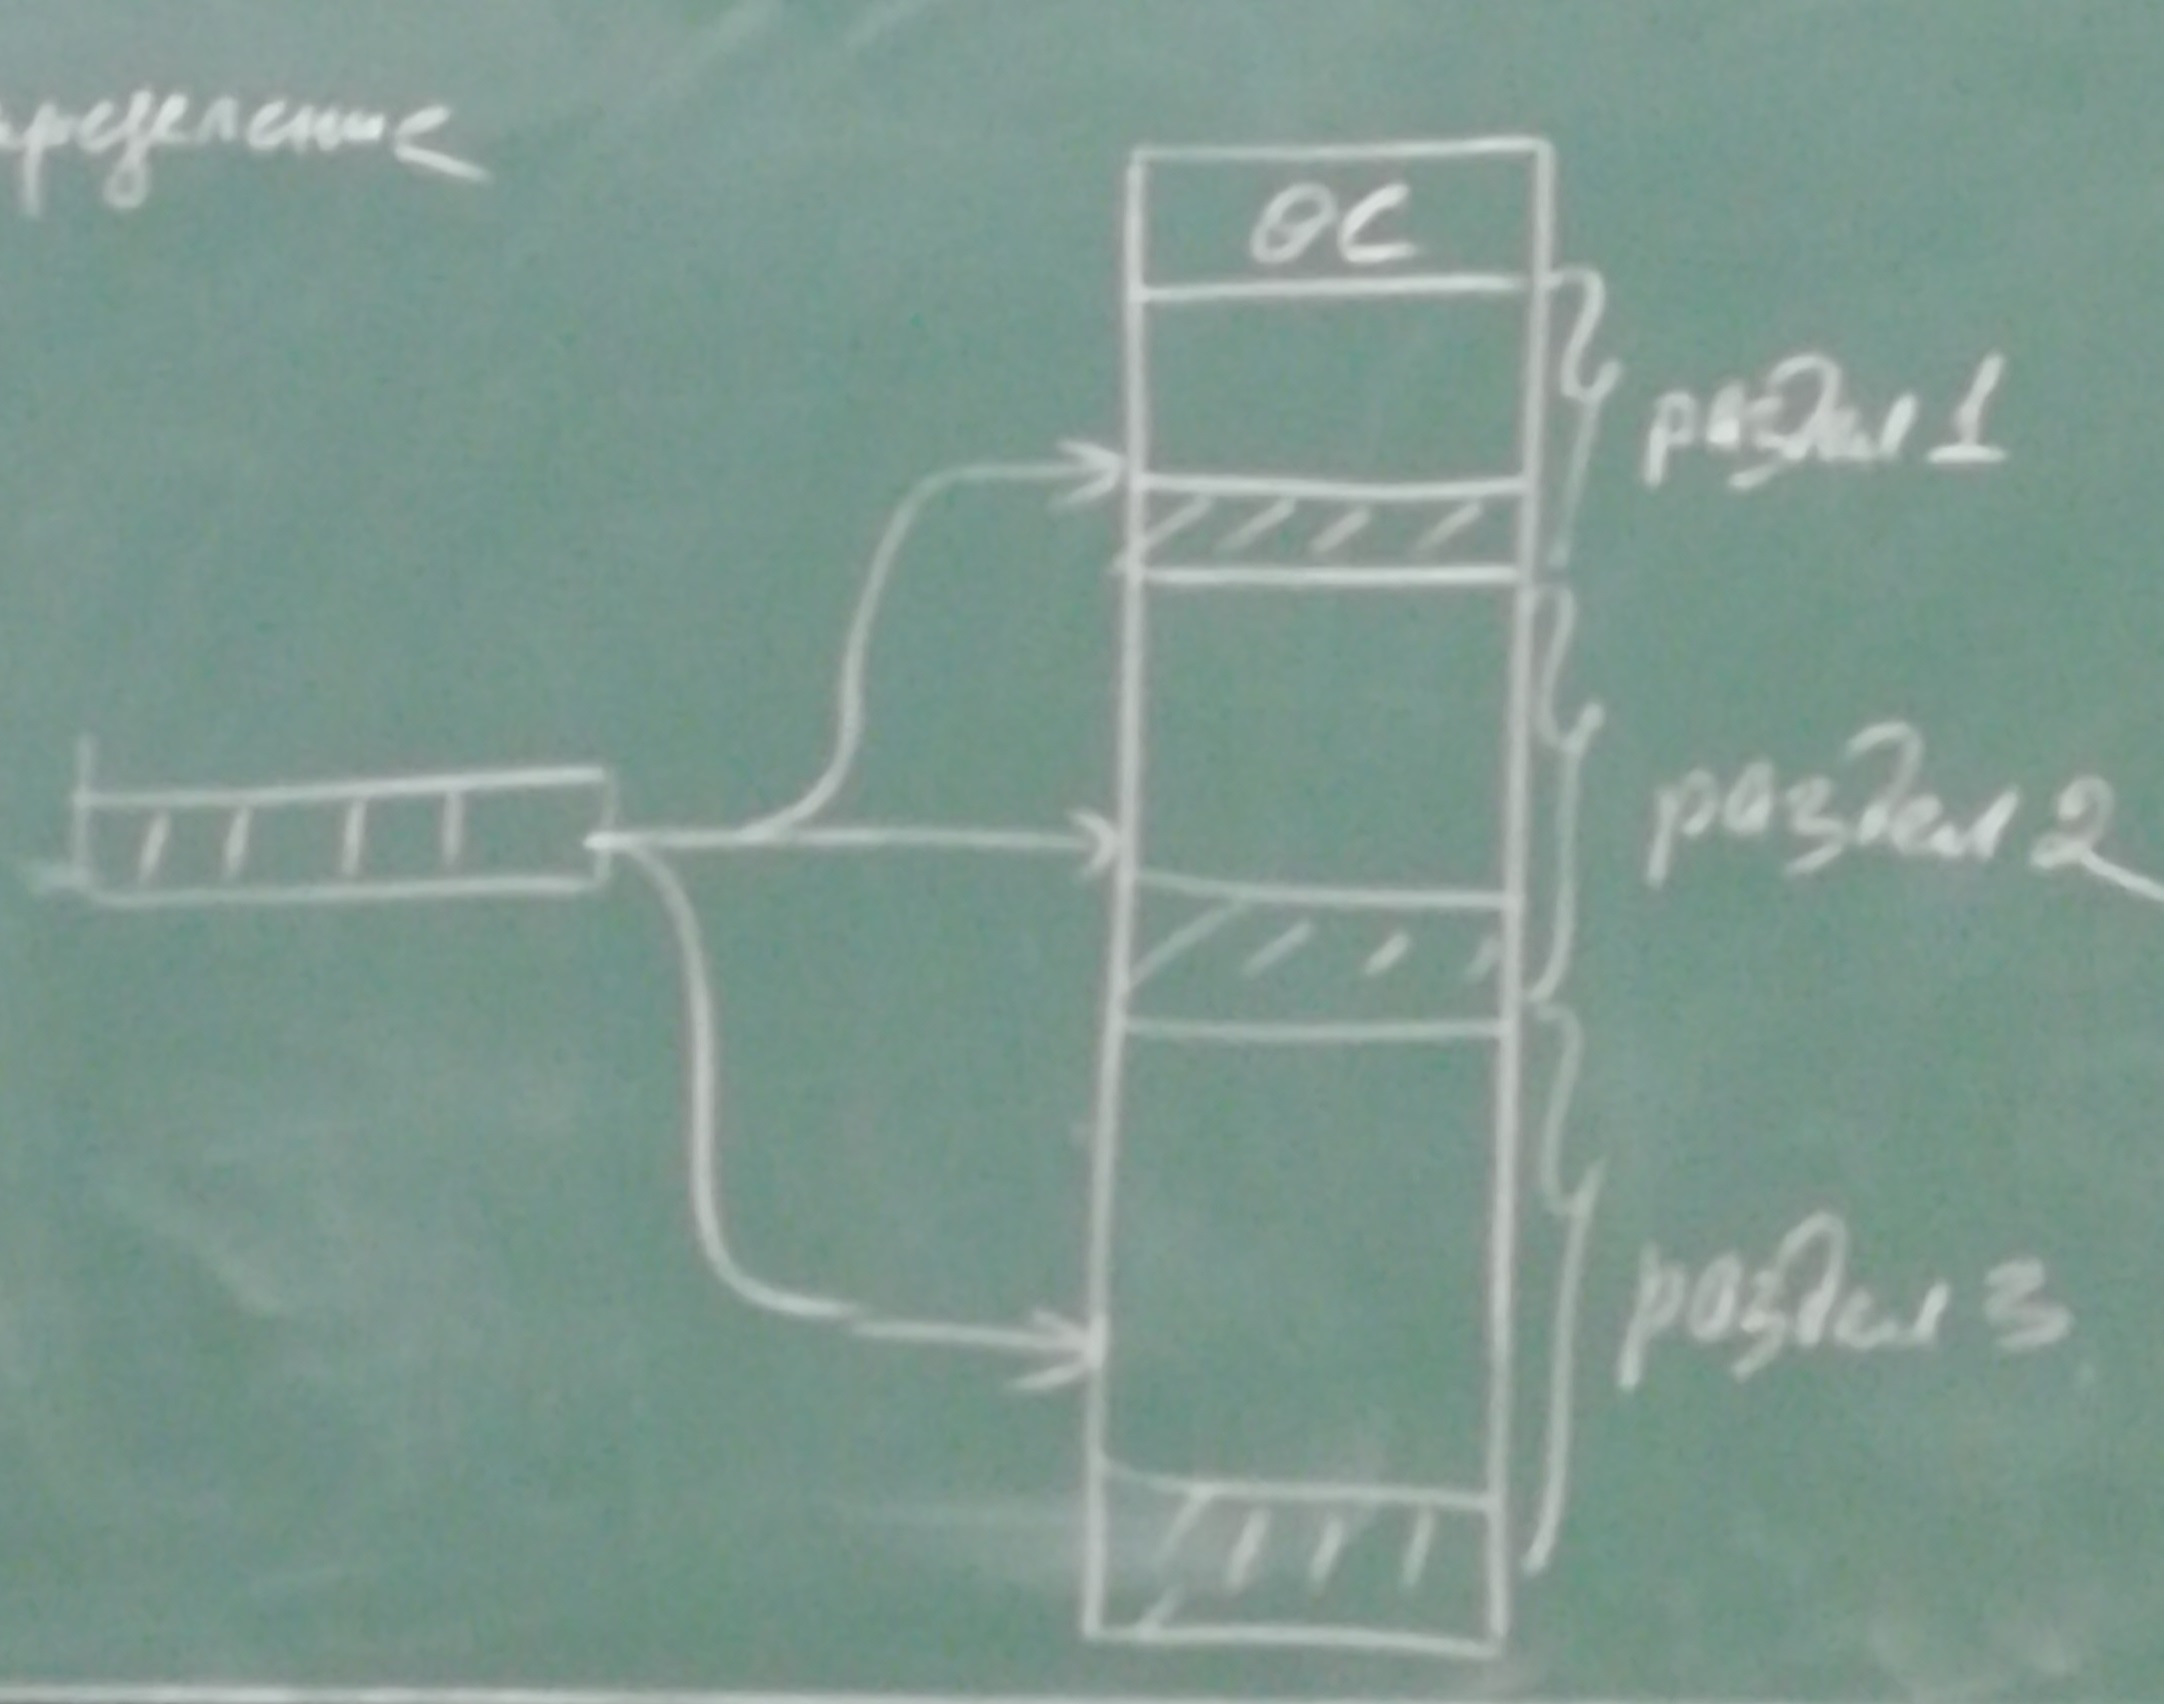 пределение
ОС
раздел 1
раздел 2
раздел 3